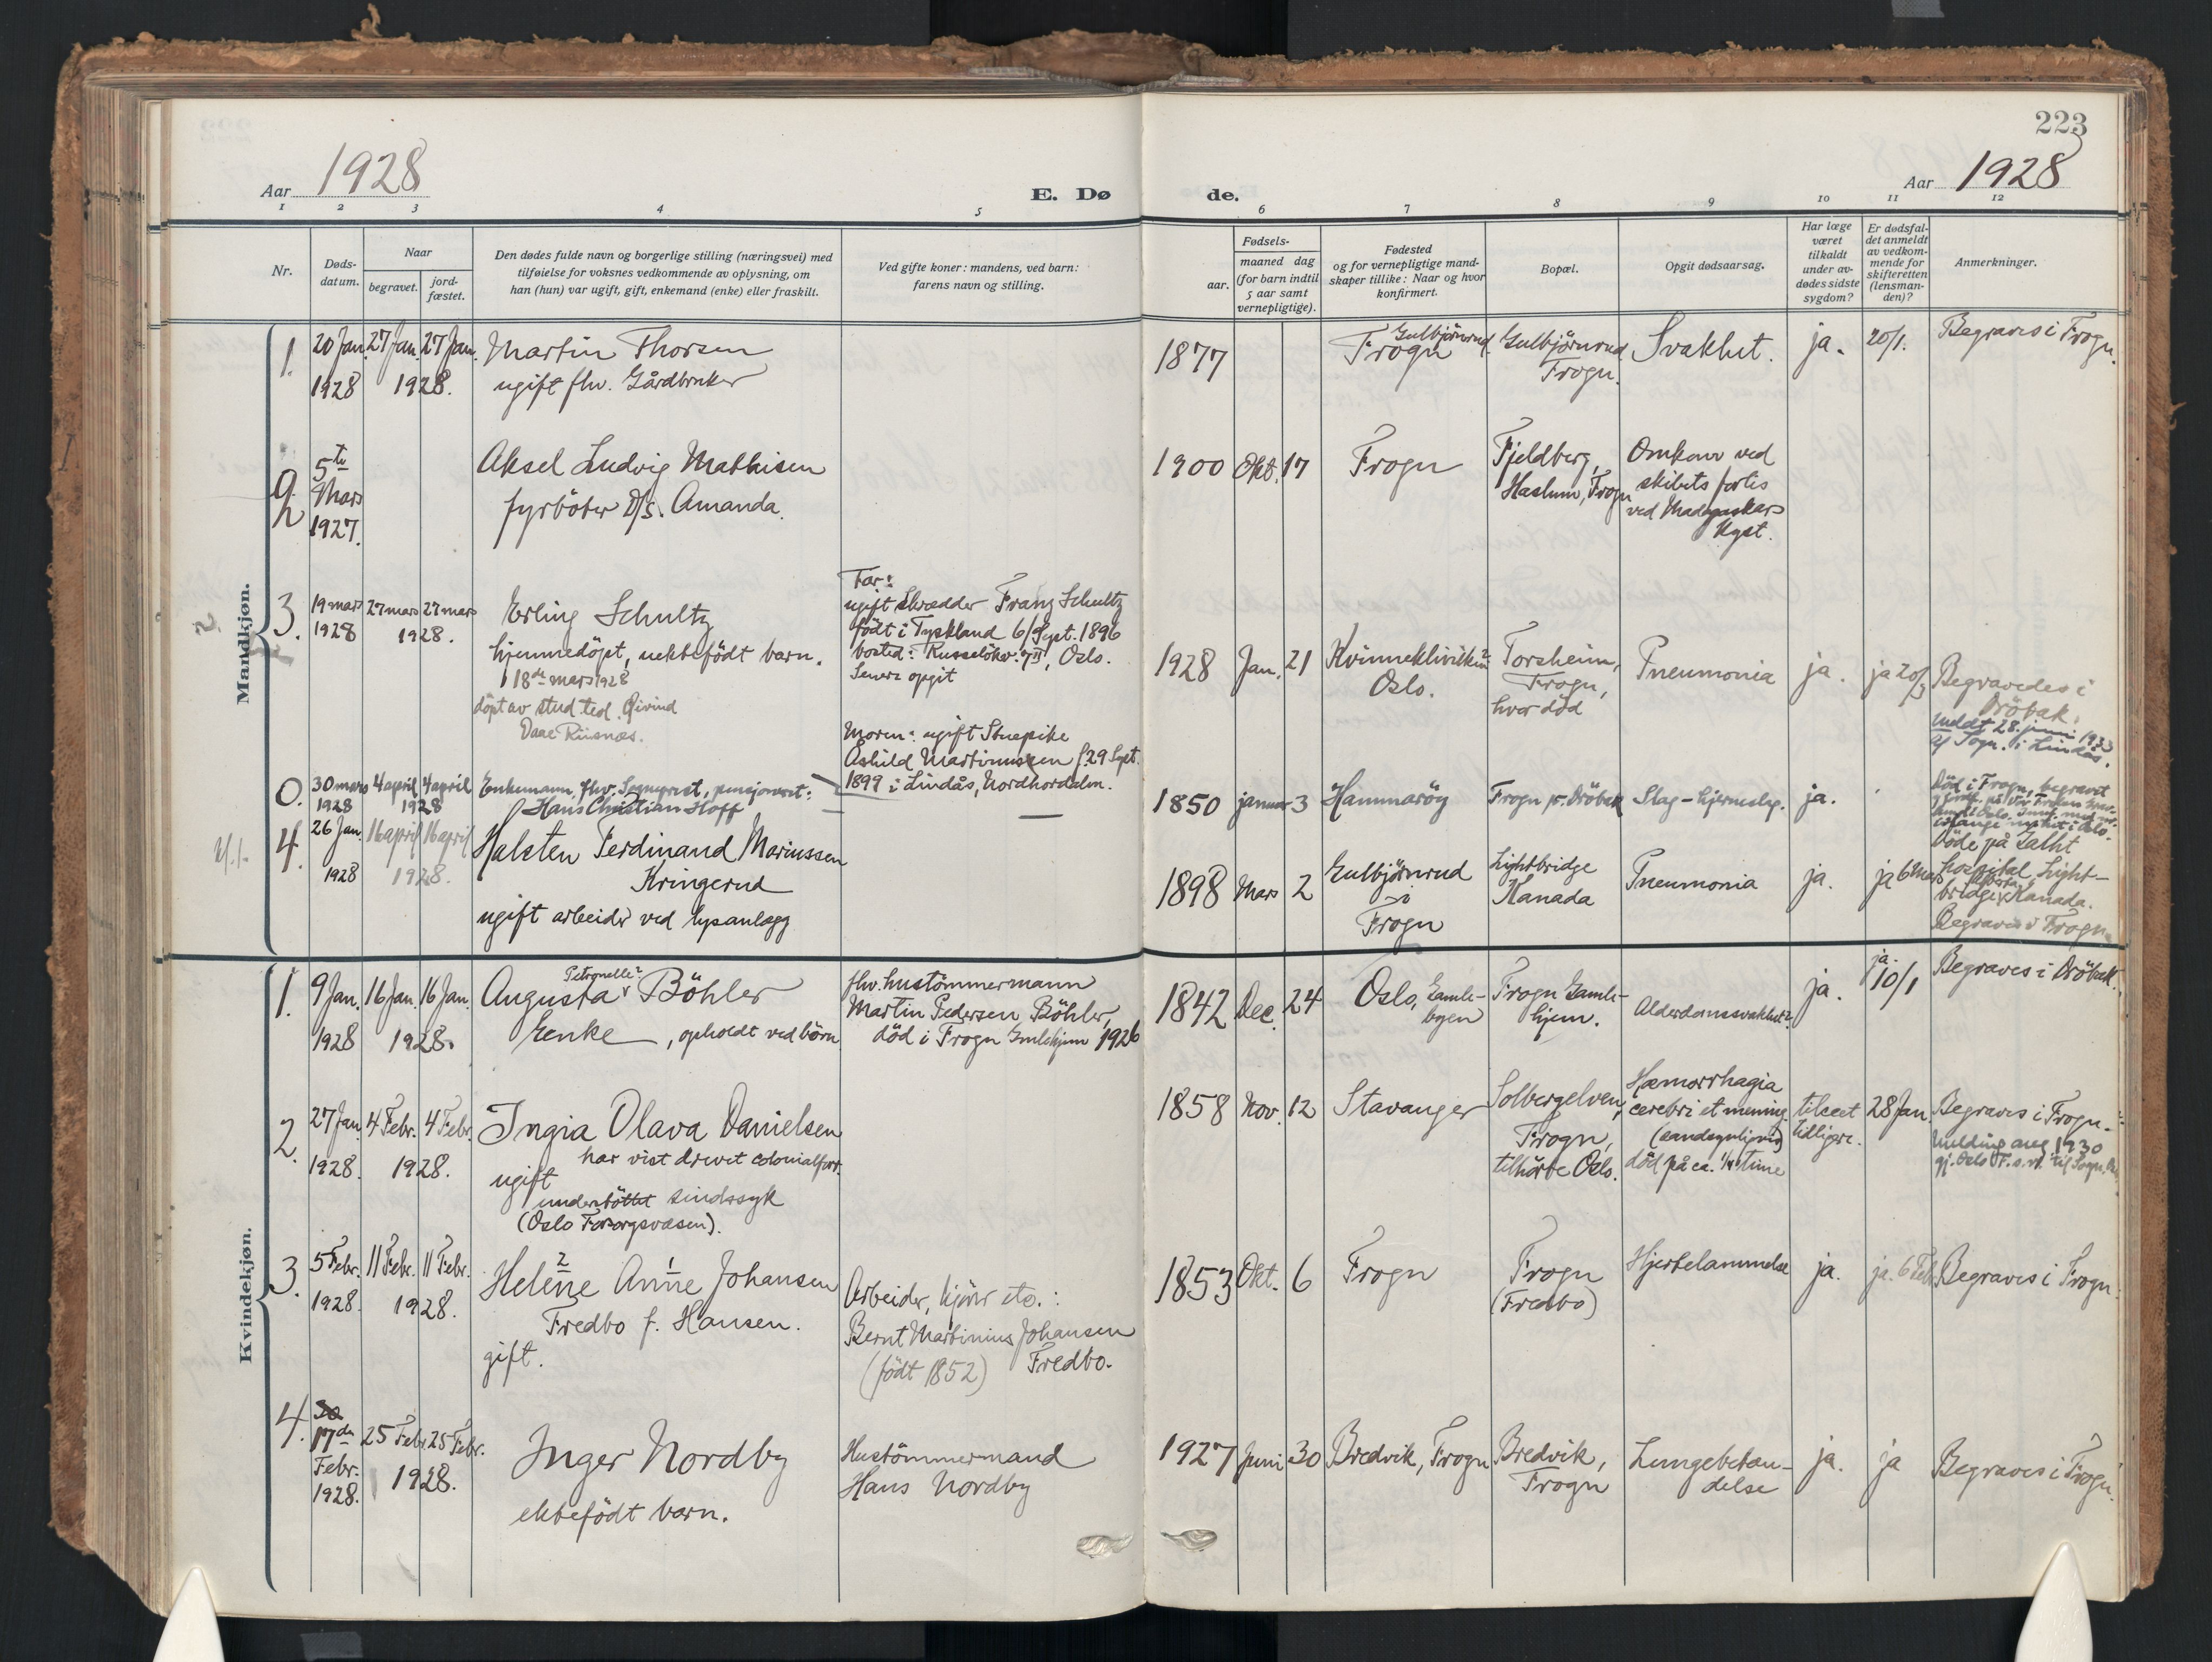 223
Aar 1928
E. Dø
de.
Aar 1928
1 2 3 4 5 6 7 8 9 10 11 12
Nr.
Døds-
datum.
Naar
begravet.
jord-
fæstet.
Den dødes fulde navn og borgerlige stilling (næringsvei) med
tilføielse for voksnes vedkommende av oplysning, om
han (hun) var ugift, gift, enkemand (enke) eller fraskilt.
Ved gifte koner: mandens, ved barn:
farens navn og stilling.
Fødsels-
aar.
maaned dag
(for barn indtil
5 aar samt
vernepligtige).
Fødested
og for vernepligtige mand-
skaper tillike: Naar og hvor
konfirmert.
Bopæl.
Opgit dødsaarsag.
Har læge
været
tilkaldt
under av-
dødes sidste
sygdom?
Er dødsfal-
det anmeldt
av vedkom-
mende for
skifteretten
(lensman-
den)?
Anmerkninger.
Mandkjøn.
1.
20 Jan.
1928
27 Jan. 27 Jan.
1928.
Martin Thorsen
ugift fhv. Gårdbruker
1877
Gulbjörnrud
Frogn
Gulbjörnrud
Frogn.
Svakhet.
ja.
20/1.
Begraves i Frogn.
2
5te
Mars
1927.
Aksel Ludvig Mathisen
fyrböter D/S. Amanda.
1900 Okt. 17
Frogn
Fjeldberg,
Haslum, Frogn
Omkom ved
skibets forlis
ved Madagaskars
Kyst.
3.
19 mars
1928
27 mars 27 mars
1928.
Erling Schultz
hjemmedöpt, uektefödt barn.
18de mars 1928
döpt av stud. teol. Eivind
Daae Riisnæs.
Far:
ugift skrædder Franz Schultz
födt i Tyskland 6/Sept. 1896
bosted: Russelökv. 7 II, Oslo.
Senere opgit
Moren: ugift Stuepike
Åshild Martinussen f. 29 Sept.
1899 i Lindås, Nordhordalen.
1928 Jan. 21
Kvinneklinikken
Oslo.
Torsheim,
Frogn,
hvor död
Pneumonia
ja.
ja 20/3
Begravedes i
Dröbak.
meldt 28. juni 1933
i Lindås.
0.
30 mars
1928
4 april 4 april
1928
Enkemann, fhv. Sogneprest, pensjonert:
Hans Christian Hoff
—
1850 januar 3
Hammarög
Frogn pr. Dröbak
Slag - hjerneslag.
ja.
Död i Frogn, begravet
4.
26 Jan.
1928
16 april 16 april
1928.
Halsten Ferdinand Mariussen
Kringerud
ugift arbeider ved lysanlægg
1898 Mars 2
Gulbjörnrud
i
Frogn
Lightbridge
Kanada
Pneumonia
ja.
ja 6 Mars
Döde på Galht
hospital Light-
bridge, Kanada.
Alberta
Begraves i Frogn
Kvindekjøn.
1.
9 Jan.
1928
16 Jan. 16 Jan.
1928.
Petronelle
Augusta Böhler
Enke, opholdt ved börn
fhv. hustömmermann
Martin Pedersen Böhler,
död i Frogn Gamlehjem 1926
1842 Dec. 24
Oslo, Gamle-
byen
Frogn Gamle-
hjem.
Alderdomssvakhet
ja.
ja.
10/1
Begraves i Dröbak.
2.
27 Jan.
1928.
4 Febr. 4 Febr.
1928.
Ingia Olava Danielsen
har vist drevet colonialforr.
ugift
understöttet sindssyk
(Oslo Forsorgsvæsen).
1858 Nov. 12
Stavanger
Solbergelven,
Frogn,
tilhörte Oslo.
Hæmorrhagia
cerebri et mening.
(sandsynligvis)
död på ca. 1/4 time
tilseet
tidligere.
28 Jan.
Begraves i Frogn.
Melding aug. 1930
3.
5 Febr.
1928.
11 Febr. 11 Febr.
1928.
Helene Anne Johansen
2 1
Fredbo f. Hansen.
gift.
Arbeider, kjörer etc.:
Bernt Martinius Johansen
(födt 1852) Fredbo.
1853 Okt. 6
Frogn
Frogn
(Fredbo)
Hjertelammelse
ja.
ja. 6 Feb.
Begraves i Frogn.
4.
17de
Febr.
1928.
25 Febr. 25 Febr.
1928.
Inger Nordby
ektefödt barn.
Hustömmermand
Hans Nordby
1927 Juni 30
Bredvik, Frogn
Bredvik,
Frogn
Lungebetæn-
delse
ja.
ja
Begraves i Frogn.